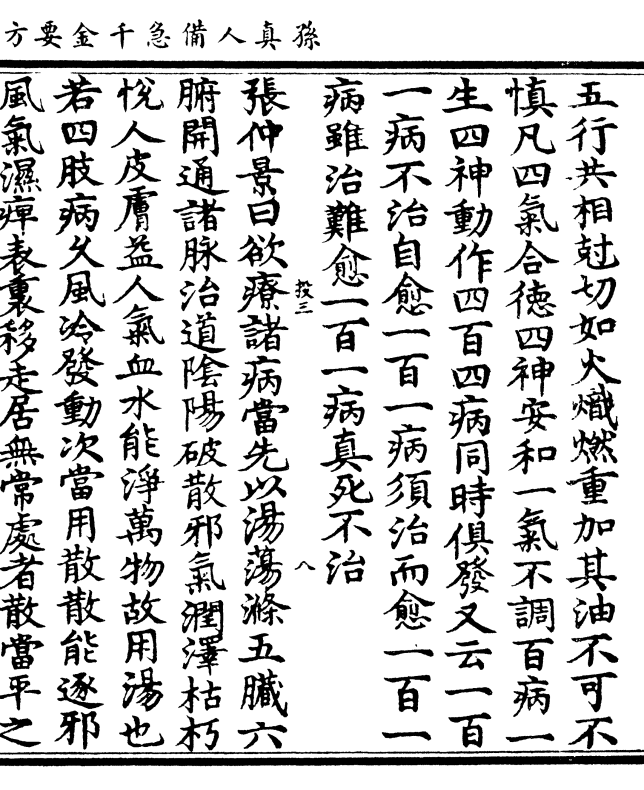 孫真人備急千金要方
五行共相尅切如火熾燃重加其油不可不
慎凡四氣合德四神安和一氣不調百病一
生四神動作四百四病同時俱發又云一百
一病不治自愈一百一病須治而愈一百一
病雖治難愈一百一病真死不治
投三
八
張仲景曰欲療諸病當先以湯蕩滌五臟六
腑開通諸脉治道陰陽破散邪氣潤澤枯朽
悅人皮膚益人氣血水能淨萬物故用湯也
若四肢病久風冷發動次當用散散能逐邪
風氣濕痺表裏移走居無常處者散當平之